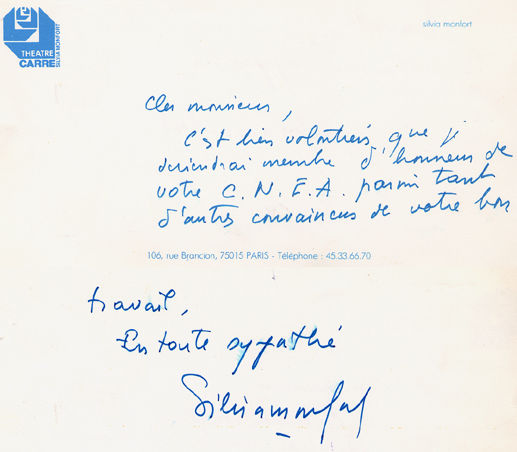 THEATRE
CARRE
SILVIA MONFORT
silvia monfort
Cher monsieur,
C'est bien volontiers que je
deviendrai membre d'honneur de
votre C.N.E.A. parmi tant
d'autres convaincus de votre bon
106, rue Brancion, 75015 PARIS - Téléphone : 45.33.66.70
travail,
En toute sympathie
Silvia monfort